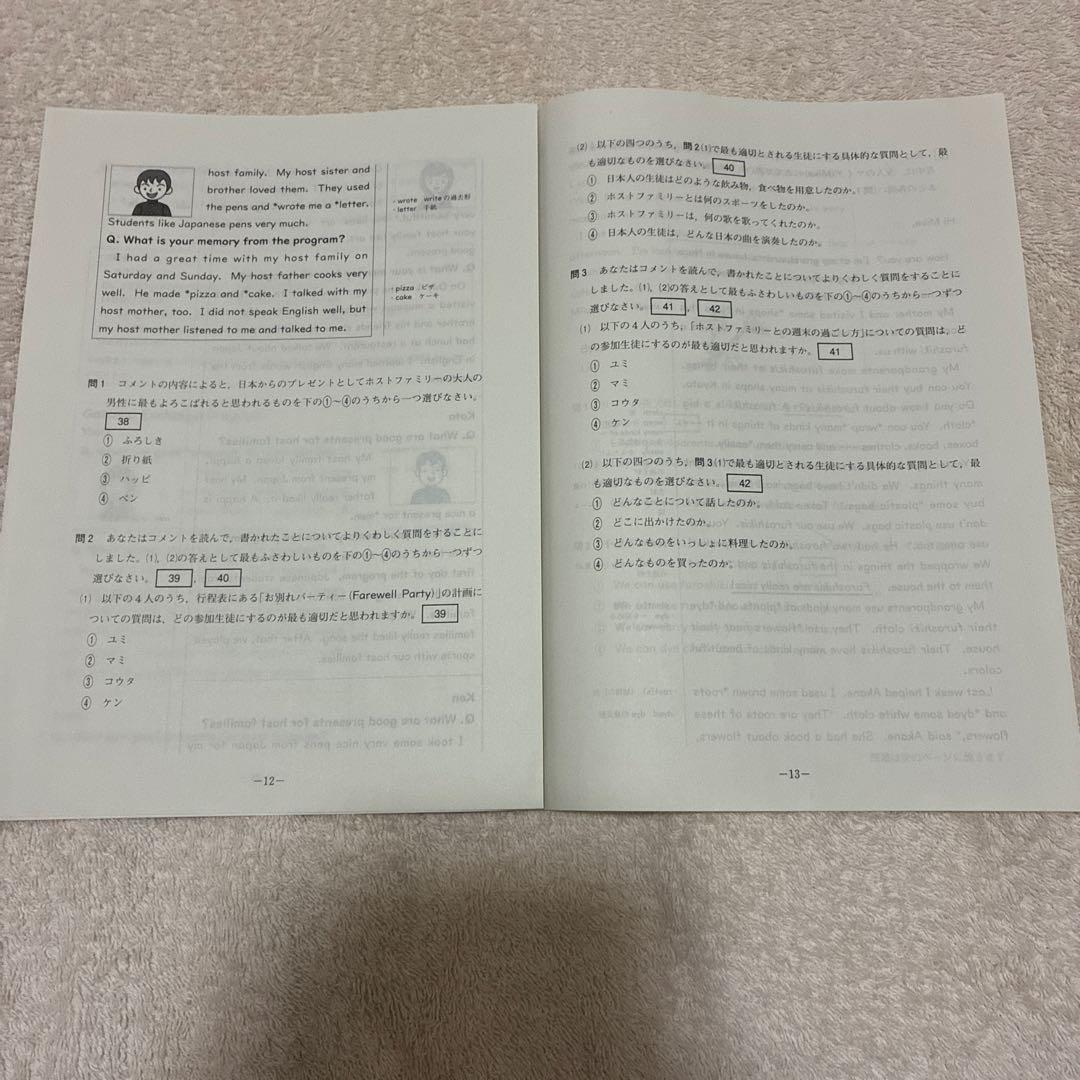 host family. My host sister and
brother loved them. They used
the pens and *wrote me a *letter.
Students like Japanese pens very much.
Q. What is your memory from the program?
I had a great time with my host family on
Saturday and Sunday. My host father cooks very
well. He made *pizza and *cake. I talked with my
host mother, too. I did not speak English well, but
my host mother listened to me and talked to me.
・wrote writeの過去形
・letter 手紙
・pizza ピザ
・cake ケーキ
問1 コメントの内容によると，日本からのプレゼントとしてホストファミリーの大人の
男性に最もよろこばれると思われるものを下の①〜④のうちから一つ選びなさい。
38
① ふろしき
② 折り紙
③ ハッピ
④ ペン
問2 あなたはコメントを読んで，書かれたことについてよりくわしく質問をすることに
しました。(1)，(2)の答えとして最もふさわしいものを下の①〜④のうちから一つずつ
選びなさい。 39 ， 40
(1) 以下の4人のうち，行程表にある「お別れパーティー(Farewell Party)」の計画に
ついての質問は，どの参加生徒にするのが最も適切だと思われますか。 39
① ユミ
② マミ
③ コウタ
④ ケン
－12－
(2) 以下の四つのうち，問2(1)で最も適切とされる生徒にする具体的な質問として，最
も適切なものを選びなさい。 40
① 日本人の生徒はどのような飲み物，食べ物を用意したのか。
② ホストファミリーとは何のスポーツをしたのか。
③ ホストファミリーは，何の歌を歌ってくれたのか。
④ 日本人の生徒は，どんな日本の曲を演奏したのか。
問3 あなたはコメントを読んで，書かれたことについてよりくわしく質問をすることに
しました。(1)，(2)の答えとして最もふさわしいものを下の①〜④のうちから一つずつ
選びなさい。 41 ， 42
(1) 以下の4人のうち，「ホストファミリーとの週末の過ごし方」についての質問は，ど
の参加生徒にするのが最も適切だと思われますか。 41
① ユミ
② マミ
③ コウタ
④ ケン
(2) 以下の四つのうち，問3(1)で最も適切とされる生徒にする具体的な質問として，最
も適切なものを選びなさい。 42
① どんなことについて話したのか。
② どこに出かけたのか。
③ どんなものをいっしょに料理したのか。
④ どんなものを買ったのか。
－13－